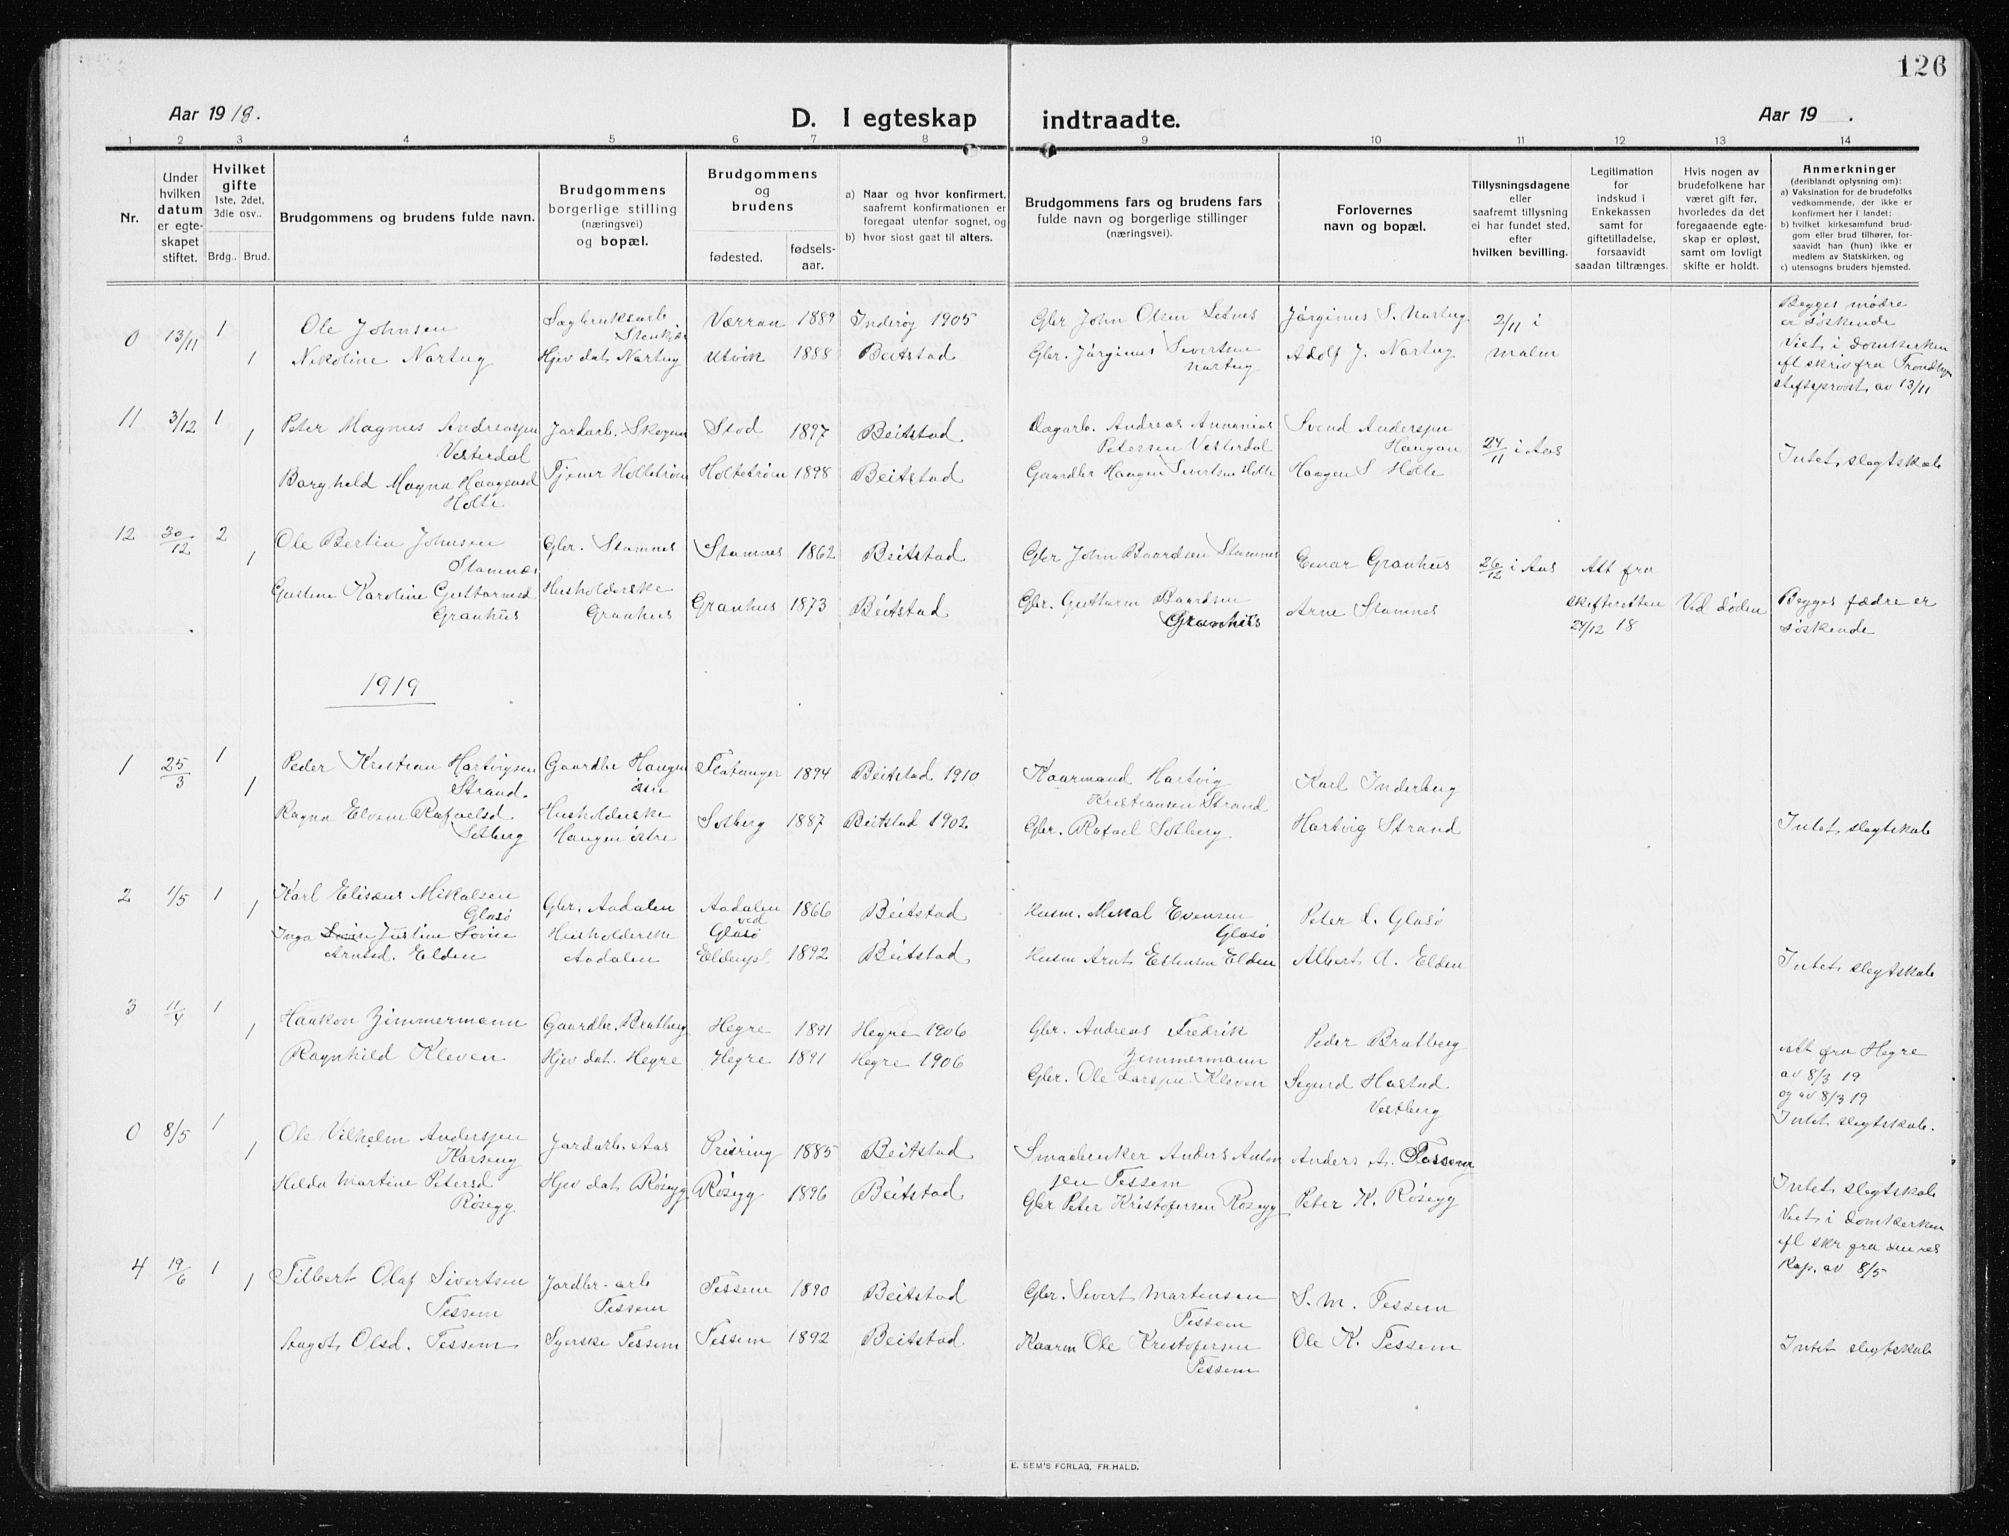 126
Aar 1918.
D. I egteskap indtraadte.
Aar 19 .
1 2 3 4 5 6 7 8 9 10 11 12 13 14
Nr.
Under hvilken datum er egteskapet stiftet.
Hvilket gifte 1ste, 2det, 3die osv..
Brdg.. Brud.
Brudgommens og brudens fulde navn.
Brudgommens borgerlige stilling (næringsvei) og bopæl.
Brudgommens og brudens
fødested. fødsels-aar.
a) Naar og hvor konfirmert, saafremt konfirmationen er foregaat utenfor sognet, og
b) hvor sidst gaat til alters.
Brudgommens fars og brudens fars fulde navn og borgerlige stillinger (næringsvei).
Forlovernes navn og bopæl.
Tillysningsdagene eller saafremt tillysning ei har fundet sted, efter hvilken bevilling.
Legitimation for indskud i Enkekassen samt for giftetilladelse, forsaavidt saadan tiltrænges.
Hvis nogen av brudefolkene har været gift før, hvorledes da det foregaaende egteskap er opløst, samt om lovligt skifte er holdt.
Anmerkninger (deriblandt oplysning om):
a) Vaksination for de brudefolks vedkommende, der ikke er konfirmert her i landet;
b) hvilket kirkesamfund brudgom eller brud tilhører, forsaavidt han (hun) ikke er medlem av Statskirken, og
c) utensogns bruders hjemsted.
0 13/11 1 Ole Johnsen Sagbruksarb Stenkjær Værran 1889 Inderøy 1905 Gbr John Olsen Letnes Jørginus S. Nartug 2/11 i malm
1 Nikoline Nartug Hjev dat Nartug Utvik 1888 Beitstad Gbr. Jørginus Sivertsen Nartug Adolf J. Nartug
Begges mødre er søskende
Viet i Domkirken
efl skriv fra Trondhj.
stiftsprovst av 13/11
11 3/12 1 Peter Magnus Andreassen Vesterdal Jordarb. Skogan Stod 1897 Beitstad Dagarb. Andreas Annanias Petersen Vesterdal Svend Andersen Haugan 24/11 i Aas
1 Borghild Magna Haagensd Holte Tjener Holtetrøen Holtetrøen 1898 Beitstad Gaardbr Haagen Sivertsen Holte Haagen S Holte Intet slegtskab
12 30/12 2 Ole Bertin Johnsen Stamnes Gbr. Stamnes Stamnes 1862 Beitstad Gbr John Baardsen Stamnes Einar Granhus 26/12 i Aas Att fra skifteretten 24/12 18 Ved døden
1 Gustine Karoline Guttormsd Granhus Husholderske Granhus Granhus 1873 Beitstad Gbr. Guttorm Baardsen Granhus Arne Stamnes Begges fædre er søskende
1919
1 25/3 1 Peder Kristian Hartvigsen Strand. Gaardbr Haugen Flatanger 1894 Beitstad 1910 Kaarmand Hartvig Kristiansen Strand Karl Inderberg
1 Ragna Elvine Rafaelsd Solberg Husholderske Haugen østre Solberg 1887 Beitstad 1902 Gbr. Rafael Solberg Hartvig Strand Intet slegtskab
2 1/5 1 Karl Elisæus Mikalsen Glasø Gbr. Aadalen Aadalen ved Glasø 1866 Beitstad Husm. Mikal Evensen Glasø Peter L. Glasø
1 Inga Justine Lovise Arntsd. Elden Husholderske Aadalen Eldenpl. 1892 Beitstad Husm Arnt Estensen Elden Albert A. Elden Intet slegtskab
3 11/4 1 Haakon Zimmermann Gaardbr. Bratberg Hegre 1891 Hegre 1906 Gbr. Andreas Fredrik Zimmermann Peder Bratberg
1 Ragnhild Kleven Hjev dat. Hegre Hegre 1891 Hegre 1906 Gbr. Ole Larsen Kleven Sigurd Hastad Vestberg
Att fra Hegre
av 8/3 19
og av 8/3 19
Intet slegtskab.
0 8/5 1 Ole Vilhelm Andersen Jordarb. Aas 1885 Beitstad Smaabruker Anders Antonsen Tessem Anders A. Tessem
1 Hilda Martine Petersd Røsegg Hjev dat Røsegg Røsegg 1896 Beitstad Gbr Peter Kristofersen Røsegg Peter K. Røsegg
Intet slegtskab
Viet i Domkirken
efl skr fra
Kap. av 8/5
4 19/6 1 Tilbert Olaf Sivertsen Tessem Jordbr-arb Tessem Tessem 1890 Beitstad Gbr. Sivert Martensen Tessem S. M. Tessem
1 Aagot Olsd. Tessem Syerske Tessem Tessem 1892 Beitstad Kaarm Ole Kristofersen Tessem Ole K. Tessem Intet slegtskab
E. SEM'S FORLAG, FR.HALD.